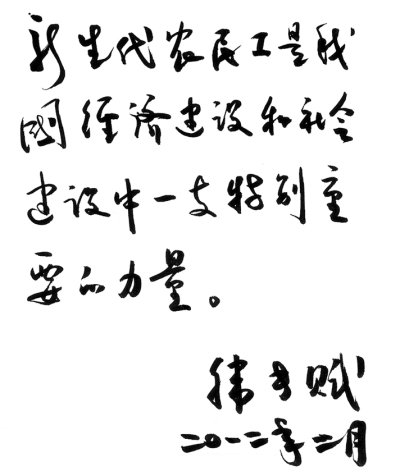 新生代农民工是我
國经济建设和社会
建设中一支特别重
要的力量。
二〇一二年二月